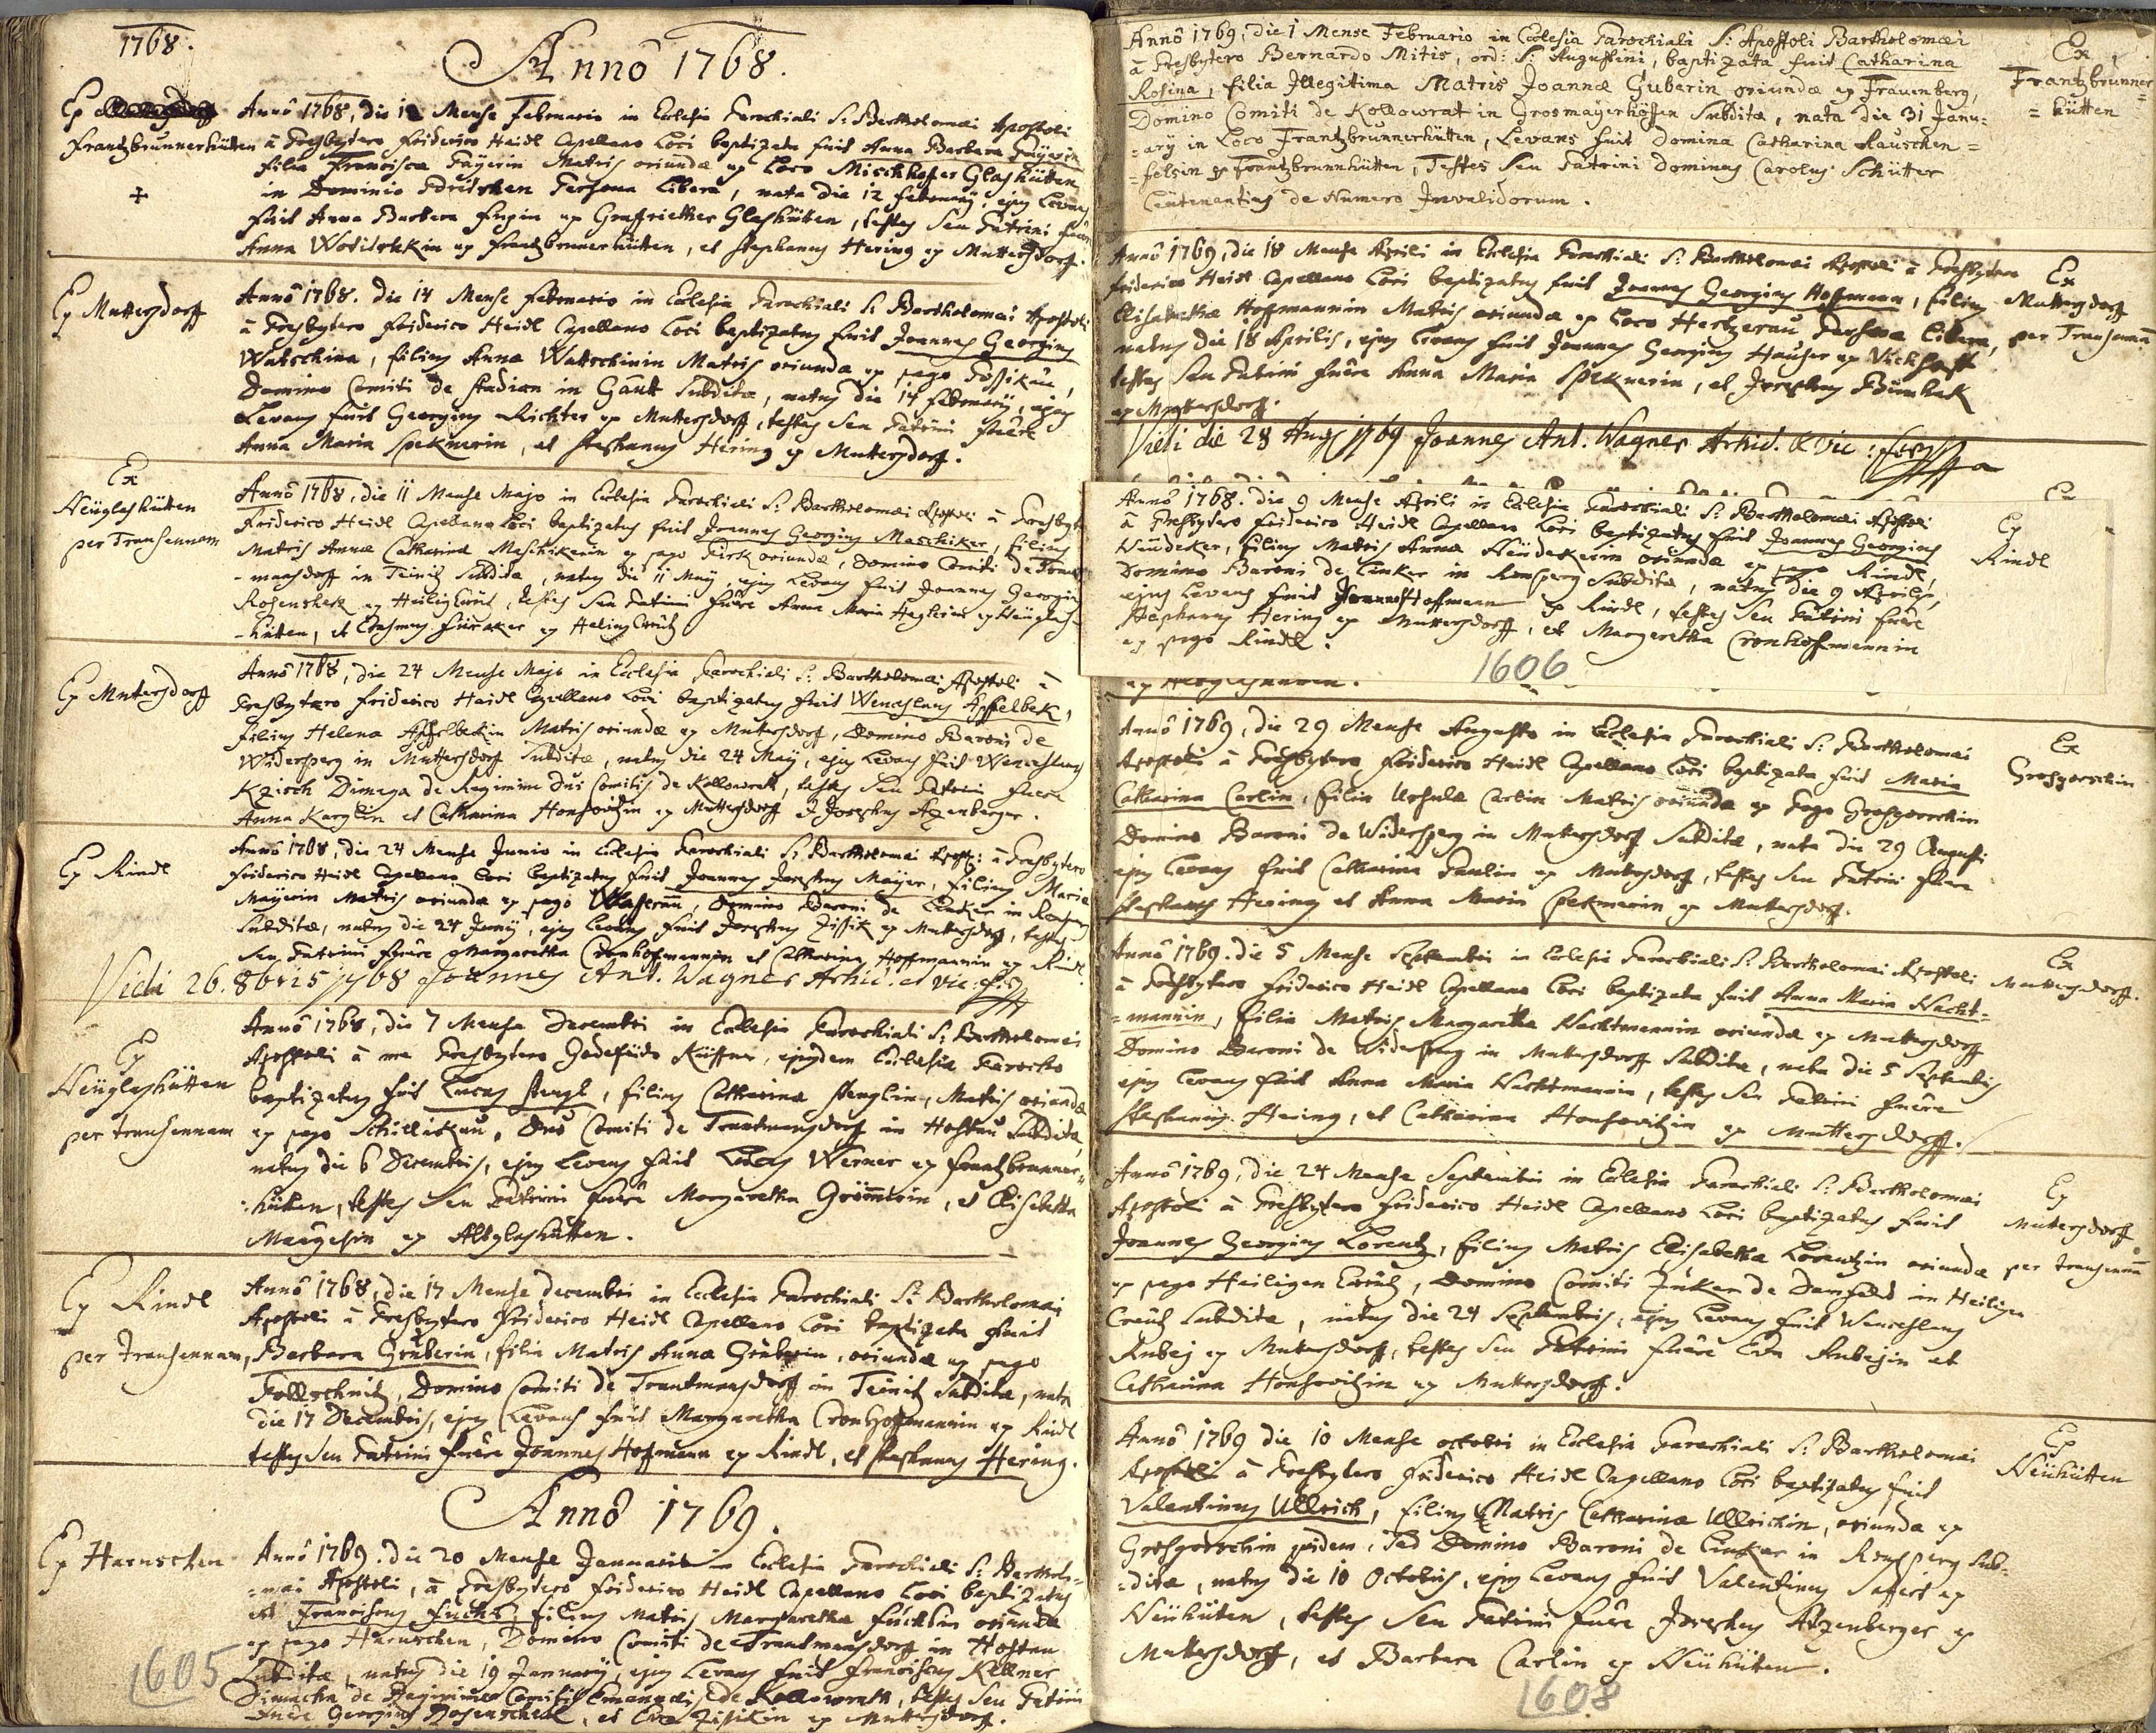 1768.
Anno 1768.
Ex
Frantzbrunnerhütten
Anno 1768, die 12 Mense Februario in Ecclesia Parochiali S: Bartholomæi Apostoli
à Presbytero Friderico Heidl Capellano Loci baptizata fuit Anna Barbara
filia Francisca Matris oriundæ ex Loco Mischhofer Glashütten
in Dominio Persona Libera, nata die 12 February, ejus Levans
fuit Anna Barbara ex Glashütten, testes seu Patrini fuêre
Anna ex Frantzbrunnerhütten, et Stephanus Hering ex Muttersdorf.
Ex Muttersdorff
Anno 1768. die 14 Mense Februario in Ecclesia Parochiali S: Bartholomæi Apostoli
à Presbytero Friderico Heidl Capellano Loci baptizatus fuit Joannes Georgius
Watschina, filius Annæ Watschinin Matris oriundæ ex pago
Domino Comiti de Stadion in Gaut Subditæ, natus die 14 February, ejus
Levans fuit Georgius Richter ex Muttersdorff, testes seu Patrini fuêre
Anna Maria Speknerin, et Stephanus Hering ex Muttersdorf.
Ex
Neüglashütten
per Transennam
Anno 1768, die 11 Mense Majo in Ecclesia Parochiali S: Bartholomæi Apostoli à Presbytero
Friderico Heidl Capellano Loci baptizatus fuit Joannes Georgius Maschiker, filius
Matris Annæ Catharinæ Maschikerin ex pago oriundæ, Domino Comiti de Traut
=mansdorff in Teinitz Subditæ, natus die 11 May, ejus Levans fuit Joannes Georgius
Rosenschek ex Heiligcreütz, testes seu Patrini fuêre Anna Maria ex Neüglas-
-hütten, et ex Heiligcreütz
Ex Muttersdorff
Anno 1768, die 24 Mense Majo in Ecclesia Parochiali S: Bartholomæi Apostoli à
Presbytero Friderico Heidl Capellano Loci baptizatus fuit Wenceslaus Apffelbek,
filius Helenæ Apffelbekin Matris oriundæ ex Muttersdorff, Domino Baroni de
Widersperg in Muttersdorf Subditæ, natus die 24 May, ejus Levans fuit Wenceslaus
Kzisch de Regimine Dni Comitis de Kollowrath, testes seu Patrini fuere
Anna Karglin et Catharina Honsowitzin ex Muttersdorff et Josephus Axenberger.
Ex Rindl
Anno 1768, die 24 Mense Junio in Ecclesia Parochiali S: Bartholomæi Apost: à Presbytero
Friderico Heidl Capellano Loci baptizatus fuit Joannes Josephus Mayer, filius Mariæ
Mayerin Matris oriundæ ex pago, Domino Baroni de Linker in
Subditæ, natus die 24 Juny, ejus Levans fuit Josephus Zissik ex Muttersdorff, testes
seu Patrini fuêre Margaretha Cronhofmannin et Catharina Hoffmannin ex Rindl.
Vidi 26. 8bris 1768 Joannes Ant. Wagner Archid. et Vic: for:
Ex
Neüglashütten
per transennam
Anno 1768, die 7 Mense Decembri in Ecclesia Parochiali S: Bartholomæi
Apostoli à me Presbytero Godefrido Küffner, ejusdem Ecclesiæ Parocho
baptizatus fuit Lucas Stengl, filius Catharinæ Stenglin, Matris oriundæ
ex pago Schilliskau, Dno Comiti de Trautmansdorf in Hostau Subditæ,
natus die 6 Decembris, ejus Levans fuit Lucas Werner ex Frantzbrunner=
:hütten, testes seu Patrini fuêre Margaretha, et Elisabetha
ex Altglashütten.
Ex Rindl
per Transennam,
Anno 1768, die 17 Mense Decembri in Ecclesia Parochiali S: Bartholomæi
Apostoli à Presbytero Friderico Heidl Capellano Loci baptizata fuit
Barbara Gruberin, filia Matris Annæ Gruberin, oriundæ ex pago
Domino Comiti de Trautmansdorff in Teinitz Subditæ, nata
die 17 Decembris, ejus Levans fuit Margaretha Cronhoffmannin ex Rindl
testes seu Patrini fuêre Joannes Hofmann ex Rindl, et Stephanus Hering.
Anno 1769.
Ex Harnschen
Anno 1769. die 20 Mense Januario in Ecclesia Parochiali S: Bartholo=
=mæi Apostoli, à Presbytero Friderico Heidl Capellano Loci baptizatus
est Franciscus Fuchs, filius Matris Margaretha Fuchsin oriundæ
ex pago Harnschen, Domino Comiti de Trautmansdorf in Hostau
Subditæ, natus die 19 January, ejus Levans fuit Franciscus Kellner
de Regimine Comitis Emanueli de Kollowrath, testes seu Patrini
fuêre Georgius Rosenschek, et Eva Zissikin ex Muttersdorf.
1605
Anno 1769, die 1 Mense Februario in Ecclesia Parochiali S: Apostoli Bartholomæi
à Presbytero Bernardo Mitis, ord: S: Augustini, baptizata fuit Catharina
Rosina, filia Illegitima Matris Joannæ Guberin oriundæ ex Frauenberg,
Domino Comiti de Kollowrat in Grosmayerhöffen Subditæ, nata die 31 Janu:
=ary in Loco Frantzbrunnerhütten, Levans fuit Domina Catharina Rauschen=
=felsin ex Frantzbrunnhütten, Testes seu Patrini Dominus Carolus Schütter
Leütenantius de Numero Invalidorum.
Ex
Frantzbrunner=
=hütten
Anno 1769, die 18 Mense Aprili in Ecclesia Parochiali S: Bartholomæi Apostoli à Presbytero
Friderico Heidl Capellano Loci baptizatus fuit Joannes Georgius Hoffmann, filius
Elisabethæ Hoffmannin Matris oriundæ ex Loco Hertzerau Persona Libera,
natus die 18 Aprilis, ejus Levans fuit Joannes Georgius Hauser ex
testes seu Patrini fuêre Anna Maria Speknerin, et Josephus
ex Muttersdorf.
Ex
Muttersdorff
per Transennam
Vidi die 28 Aug 1769 Joannes Ant. Wagner Archid. & Vic: for:
Anno 1768. die 9 Mense Aprili in Ecclesia Parochiali S: Bartholomæi Apostoli
à Presbytero Friderico Heidl Capellano Loci baptizatus fuit Joannes Georgius
Neüdecker, filius Matris Annæ Neüdekerin oriundæ ex pago Rindl,
Domino Baroni de Linker in Ronsperg Subditæ, natus die 9 Aprilis,
ejus Levans fuit Joannes Hoffmann ex Rindl, testes seu Patrini fuêre
Stephanus Hering ex Muttersdorff, et Margaretha Cronhofmannin
ex pago Rindl.
Ex
Rindl
1606
Anno 1769, die 29 Mense Augusto in Ecclesia Parochiali S: Bartholomæi
Apostoli à Presbytero Friderico Heidl Capellano Loci baptizata fuit Maria
Catharina Carlin, filia Ursulæ Carlin Matris oriundæ ex Pago Grosgorschin
Domino Baroni de Widersperg in Muttersdorf Subditæ, nata die 29 Augusti
ejus Levans fuit Catharina Paulin ex Muttersdorff, testes seu Patrini fuêre
Stephanus Hering et Anna Maria Speknerin ex Muttersdorf.
Ex
Grosgorschin
Anno 1769. die 5 Mense Septembri in Ecclesia Parochiali S: Bartholomæi Apostoli
à Presbytero Friderico Heidl Capellano Loci baptizata fuit Anna Maria Nacht=
=mannin, filia Matris Margaretha Nachtmannin oriundæ ex Muttersdorff
Domino Baroni de Widersperg in Muttersdorff Subditæ, nata die 5 Septembris
ejus Levans fuit Anna Maria Nachtmannin, testes seu Patrini fuêre
Stephanus Hering, et Catharina Honsowitzin ex Muttersdorff.
Ex
Muttersdorff.
Anno 1769, die 24 Mense Septembri in Ecclesia Parochiali S: Bartholomæi
Apostoli à Presbytero Friderico Heidl Capellano Loci baptizatus fuit
Joannes Georgius Lorentz, filius Matris Elisabetha Lorentzin oriundæ
ex pago Heiligen Creütz, Domino Comiti de in Heiligen
Creütz Subditæ, natus die 24 Septembris, ejus Levans fuit Wenceslaus
Rubej ex Muttersdorff, testes seu Patrini fuêre Eva Rubejin et
Catharina Honsowitzin ex Muttersdorf.
Ex
Muttersdorff
per transennam
Anno 1769 die 10 Mense octobri in Ecclesia Parochiali S: Bartholomæi
Apostoli à Presbytero Friderico Heidl Capellano Loci baptizatus fuit
Valentinus Ullrich, filius Matris Catharinæ Ullrichin, oriundæ ex
Grosgorschin quidem, sed Domino Baroni de Linker in Ronsperg Sub=
=ditæ, natus die 10 Octobris, ejus Levans fuit Valentinus ex
Neühütten, testes seu Patrini fuêre Josephus Axenberger ex
Muttersdorff, et Barbara Carlin ex Neühütten.
Ex
Neühütten
1608